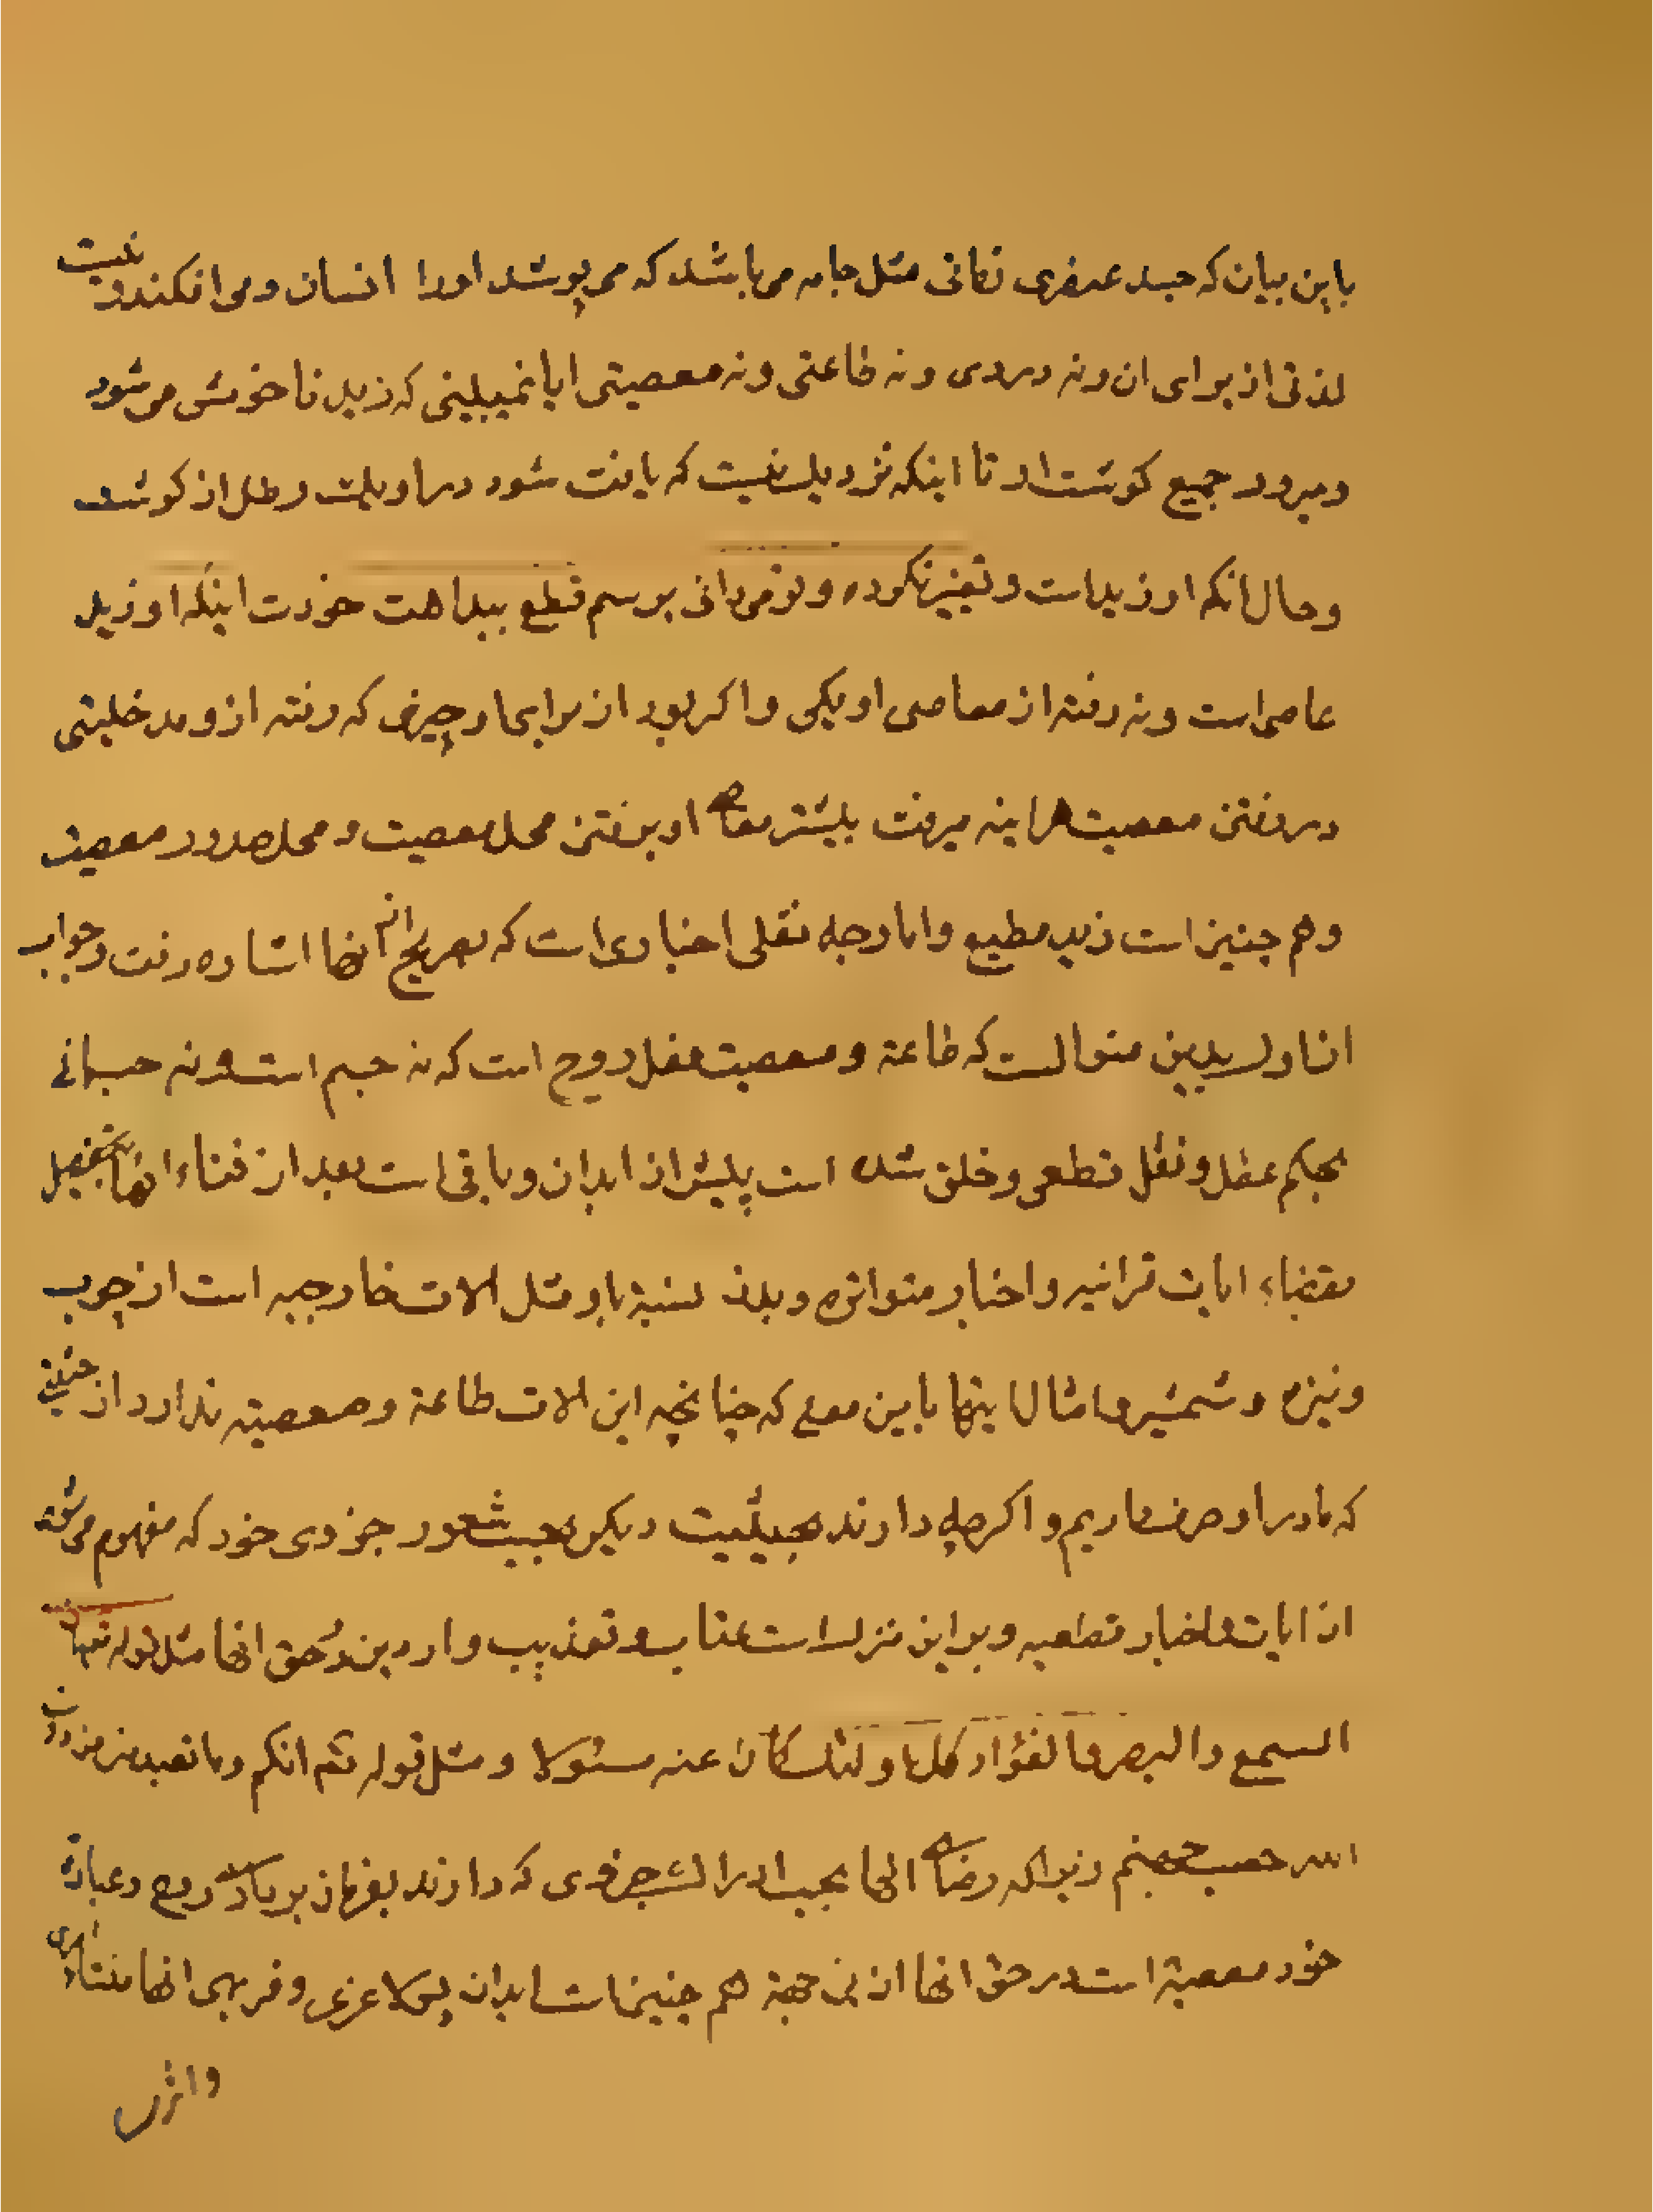 باین بیان که جسد عنصری زمانی مثل جامه میباشد که می پوشد اورا انسان و می افکندد و نیست
لذتی از برای ان ونه دردی ونه طاعتی ونه معصیتی ایا نمیبینی که زید ناخوش می شود
ومیرود جمیع کوشت او تا اینکه نزدیک نیست که یافت شود در او یک رطل از کوشت
وحال انکه او زید است وتغییر نکرده و تو می دانی برسم قطع ببداهت خودت اینکه او زید
عاصی است ونه رفته از معاصی او یکی واکر بود از برای ا چیزی که رفته از و مدخلیتی
در رفتن معصیت هراینه میرفت بیشتر معاصی او برفتن محل معصیت و محل صدور معصیت
وهم چنین است زید مطیع واما وجه نقلی اخباری است که بصریح انها اشاره رفت وجواب
از اول بدین منوالست که طاعة و معصیت فعل روح است که نه جسم است ونه جسمانی
بحکم عقل ونقل قطعی وخلق شده است پیش از ابدان وباقی است بعد از فناء انها
بمقتضاء ایات قرانیه واخبار متواتره وبدن نسبة باو مثل الات خارجیه است از چوب
ونیزه وشمشیر وامثال اینها باین معنی که چنانچه این الات طاعة ومعصیته ندارد از حیثیتی
که مادر او حرف داریم و اکرچه دارند بحیثیت دیکر بحسب شعور جزوی خود که مفهوم میشود
از ایات واخبار قطعیه وبر این منزله است عتاب وتعذیب وارد بر در حق انها مثل قوله تعالی ان
السمع والبصر والفؤاد کل اولئک کان عنه مسئولا ومثل قوله تعم انکم وما تعبدون من دون
الله حصب جهنم زیرا که رضای انها بحسب ادراک جزوی که دارند بفرمان بر روح وعبادة
خود معصیة است در حق انها از این جهة هم چنین است ابدان پس لاغری وفربهی انها
واثر